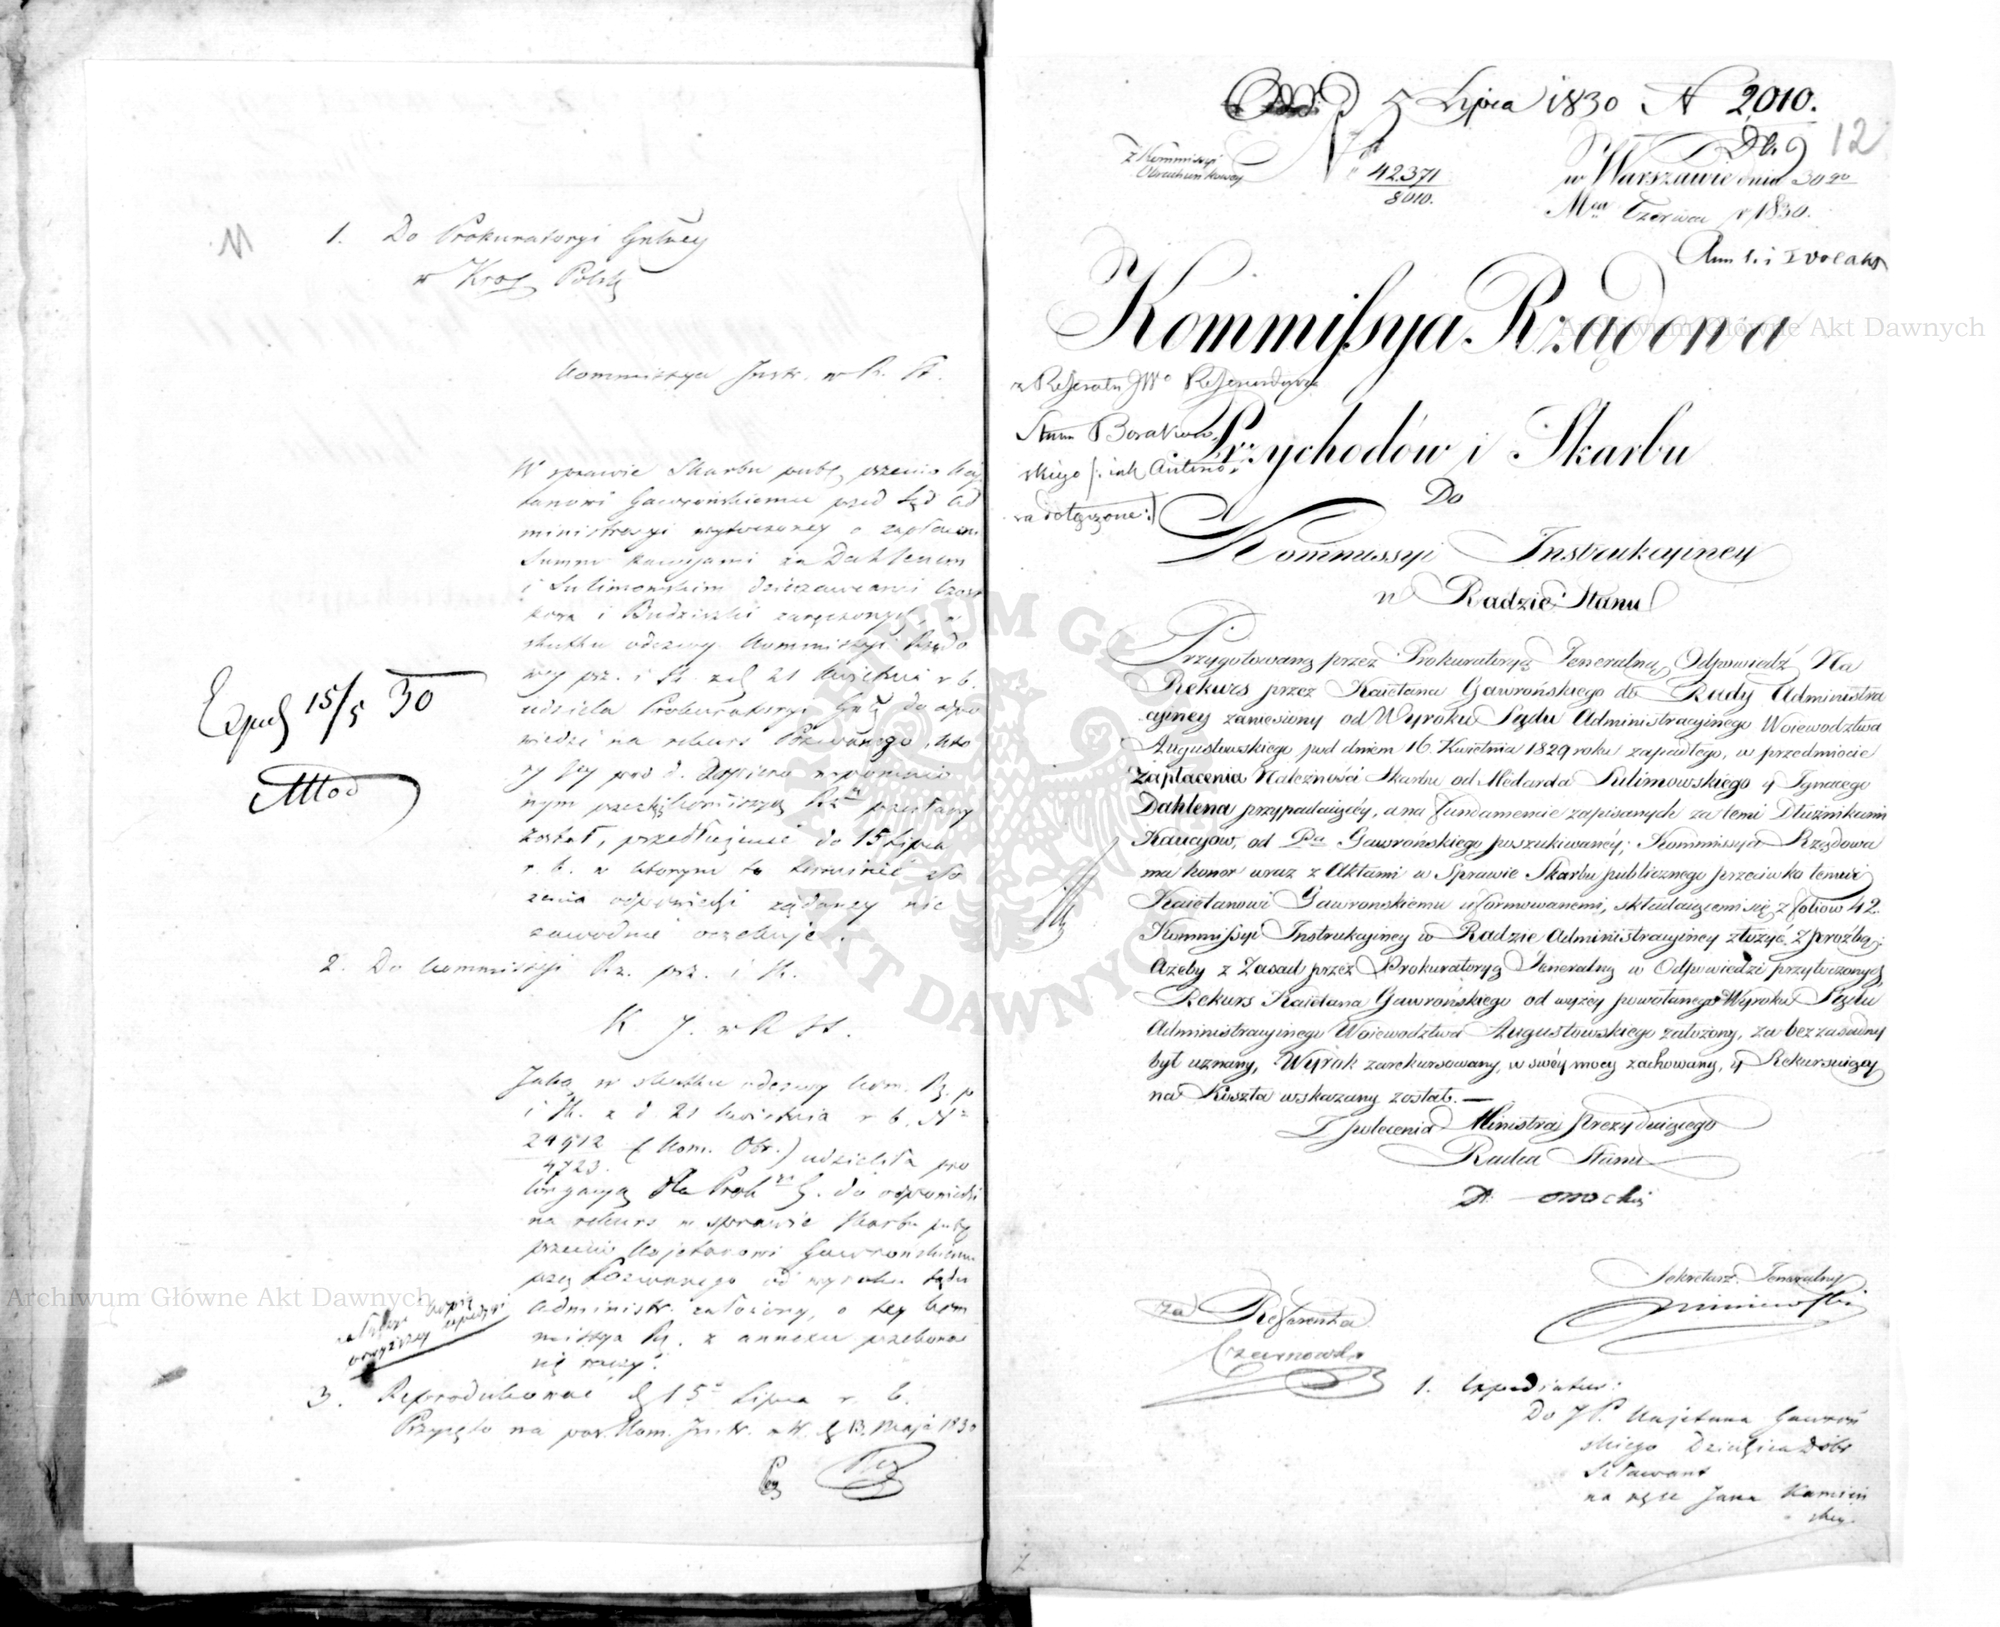 1. Do Prokuratoryi Gnlney
w Król. Polsk.
Kommissya Instr. w R. St.
W sprawie Skarbu pub. przeciw Kaj
tanowi Gawrońskiemu przed Sąd Ad
ministracyi wytoczoney o zapłacenie
Summ kaucyami za Dahlenem
i Sulimowskim dzierżawcami
i zaręczonych, w
skutku odezwy Kommissyi Rządo
wey prz. i S. z d. 21 Kwietnia r. b.
udziela Prokuratoryi Gnl. do odpo
wiedzi na rekurs Pozwanego, któ
ry Jey pod d.
nym przez Kommissyą Rz. przesłany
został, przedłużenie do 15 Lipca
r. b. w którym to terminie zło
żenia odpowiedzi żądaney nie
zawodnie oczekuje.
Exped. 15/5 30
2. Do Kommissyi Rz. prz. i S.
K. J. w R. St.
Jaką w skutku odezwy Kom. Rz. p.
i S. z d. 21 Kwietnia r. b. N
24912
4723. (Kom. Obr.) udzieliła pro
longacyą dla Prok. G. do odpowiedzi
na rekurs w sprawie Skarbu pub.
przeciw Kajetanowi Gawrońskiemu
przez Pozwanego od wyroku Sądu
Administr. założony, o tey Kom
missya Rz. z annexu przekona
się raczy.
3. Reprodukować d. 15 Lipca r. b.
Przyjęto na pos. Kom. Instr. d. 13. Maja 1830
5 Lipca 1830 N 2010.
12
z Kommissyi
Obrachunkowey
N 42371
8010.
w Warszawie dnia 30go
Mca Czerwca r. 1830.
Kommissya Rządowa
z Referatu JWo Referendarza
Przychodów i Skarbu
Stanu Borakow
skiego
Do
Kommissyi Instrukcyiney
w Radzie Stanu
Przygotowaną przez Prokuratoryą Jeneralną Odpowiedź Na
Rekurs przez Kaietana Gawrońskiego do Rady Administra
cyiney zaniesiony od Wyroku Sądu Administracyinego Woiewodztwa
Augustowskiego pod dniem 16. Kwietnia 1829 roku zapadłego, w przedmiocie
zapłacenia Należności Skarbu od Medarda Sulimowskiego y Ignacego
Dahlena przypadaiącéy, a na fundamencie zapisanych za temi Dłużnikami
Kaucyow, od Pna Gawrońskiego poszukiwanéy; Kommissya Rządowa
ma honor wraz z Aktami w Sprawie Skarbu publicznego przeciwko temuż
Kaietanowi Gawronskiemu uformowanemi, składaiącemi się z foliow 42.
Kommissyi Instrukcyiney w Radzie Administracyiney złożyć z prozbą;
Ażeby z Zasad przez Prokuratoryą Jeneralną w Odpowiedzi przytoczonych
Rekurs Kaietana Gawrońskiego od wyżéy powołanego Wyroku Sądu
Administracyinego Woiewodztwa Augustowskiego założony, za bezzasadny
był uznany, Wyrok zarekursowany, w swéy mocy zachowany, y Rekursuiący
na Koszta wskazany został. —
Z polecenia Ministra Prezyduiącego
Radca Stanu
Sekretarz Jeneralny
za Referenta
Czarnowski
1. Expediatur:
Do JP. Kajetana Gawroń
skiego Dziedzica Dóbr
na ręce Jana Kamiń
skiey.
Archiwum Główne Akt Dawnych
Archiwum Główne Akt Dawnych
ARCHIWUM GŁÓWNE AKT DAWNYCH